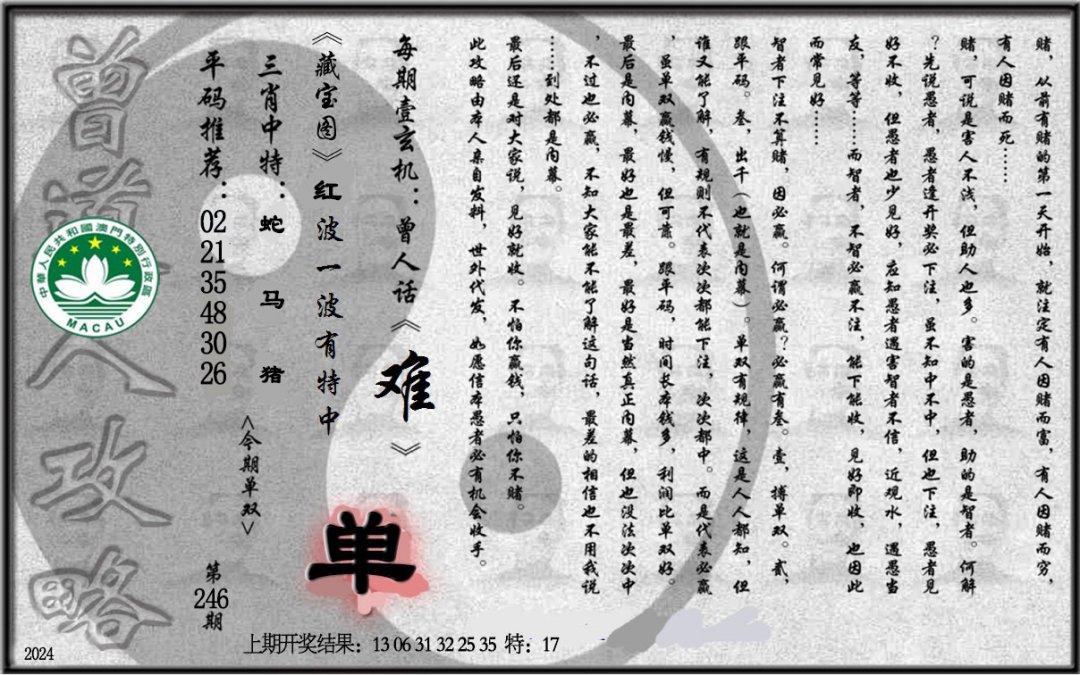 赌，从前有赌的第一天开始，就注定有人因赌而富，有人因赌而穷，
有人因赌而死……
赌，可说是害人不浅，但助人也多。害的是愚者，助的是智者。何解
？先说愚者，愚者逢开奖必下注，虽不知中不中，但也下注，愚者见
好不收，但愚者也少见好，应知愚者遇害智者不信，近观水，遇愚当
友，等等……而智者，不智必赢不注，能下能收，见好即收，也因此
而常见好……
智者下注不算赌，因必赢。何谓必赢？必赢有叁。壹，搏单双。贰，
跟平码。叁，出千（也就是内幕）。单双有规律，这是人人都知，但
谁又能了解，有规则不代表次次都能下注，次次都中。而是代表必赢
，虽单双赢钱慢，但可靠。跟平码，时间长本钱多，利润比单双好。
最后是内幕，最好也是最差，最好是当然真正内幕，但也没法次次中
，不过也必赢，不知大家能不能了解这句话，最差的相信也不用我说
……到处都是内幕。
最后还是对大家说，见好就收。不怕你赢钱，只怕你不赌。
此攻略由本人亲自发料，世外代发，如愿信本愚者必有机会收手。
每期壹玄机：曾人话《难》
《藏宝图》红波一波有特中
单
三肖中特：蛇 马 猪
<今期单双>
平码推荐：02 21 35 48 30 26
第246期
曾道人攻略
中華人民共和國澳門特別行政區
MACAU
上期开奖结果：13 06 31 32 25 35 特：17
2024